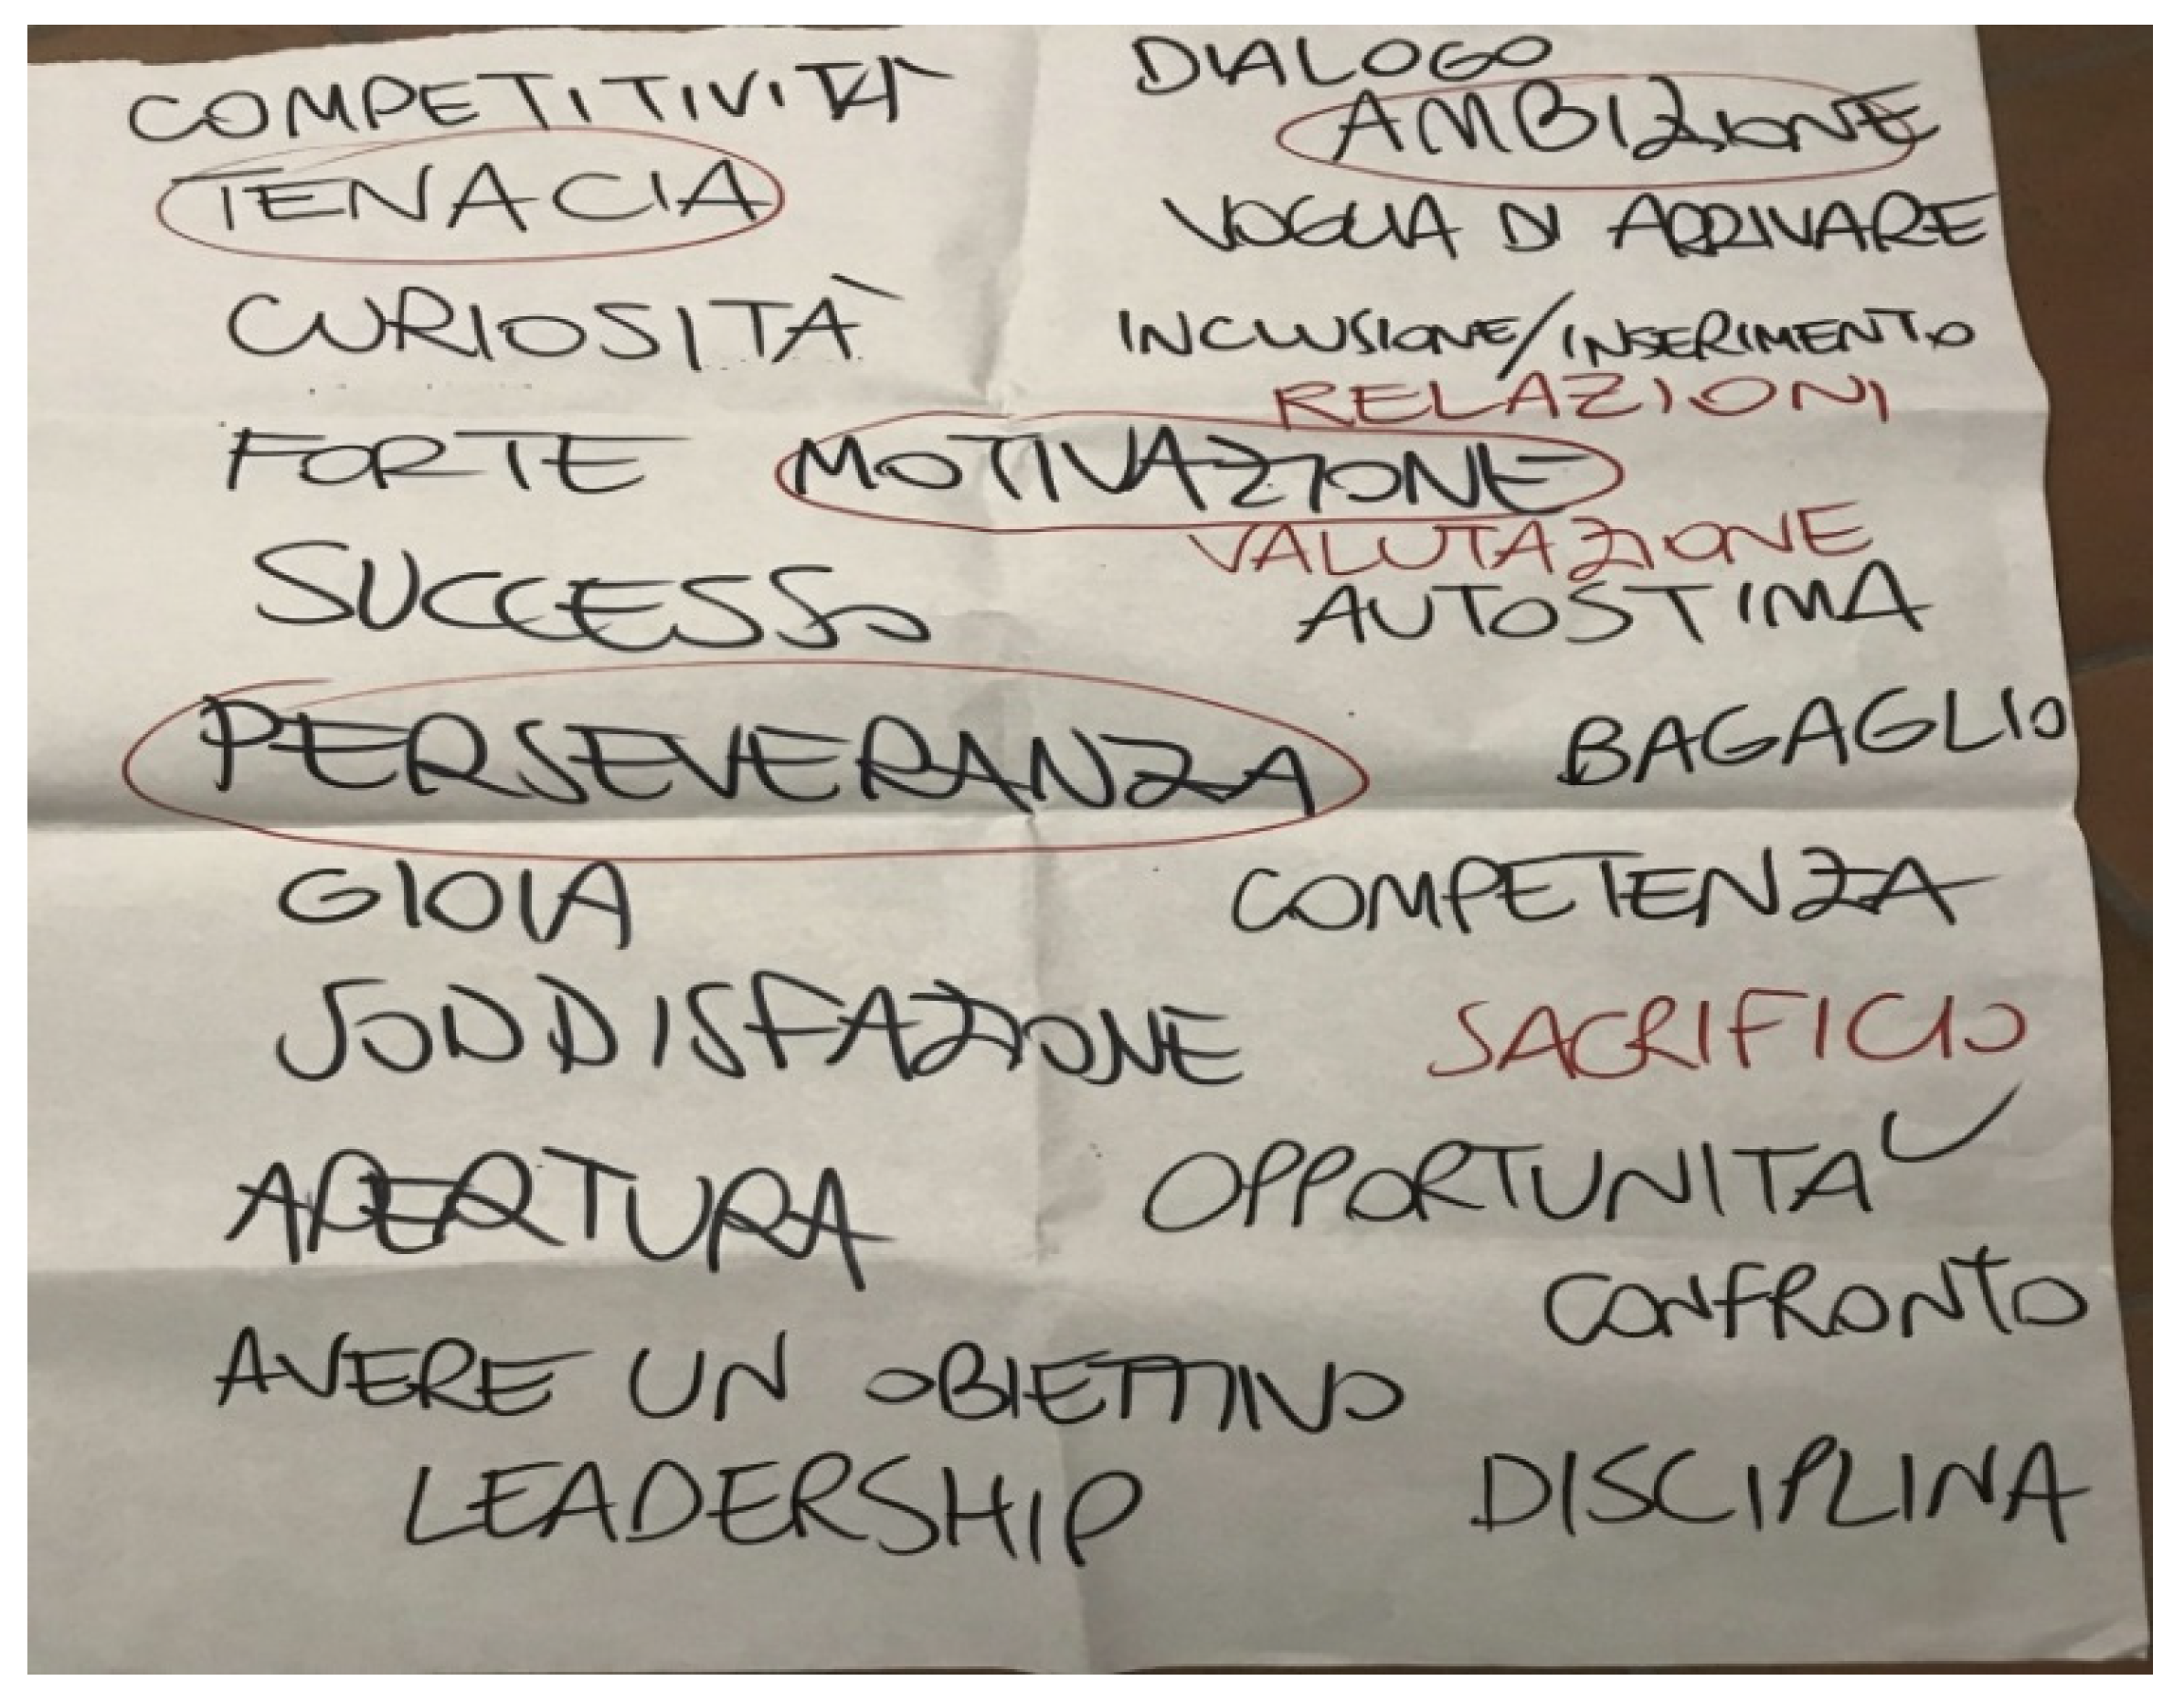 COMPETITIVITÀ
TENACIA
CURIOSITÀ
FORTE MOTIVAZIONE
SUCCESSO
PERSEVERANZA
GIOIA
SODDISFAZIONE
APERTURA
AVERE UN OBIETTIVO
LEADERSHIP
DIALOGO
AMBIZIONE
VOGLIA DI ARRIVARE
INCLUSIONE/INSERIMENTO
RELAZIONI
VALUTAZIONE
AUTOSTIMA
BAGAGLIO
COMPETENZA
SACRIFICIO
OPPORTUNITÀ
CONFRONTO
DISCIPLINA